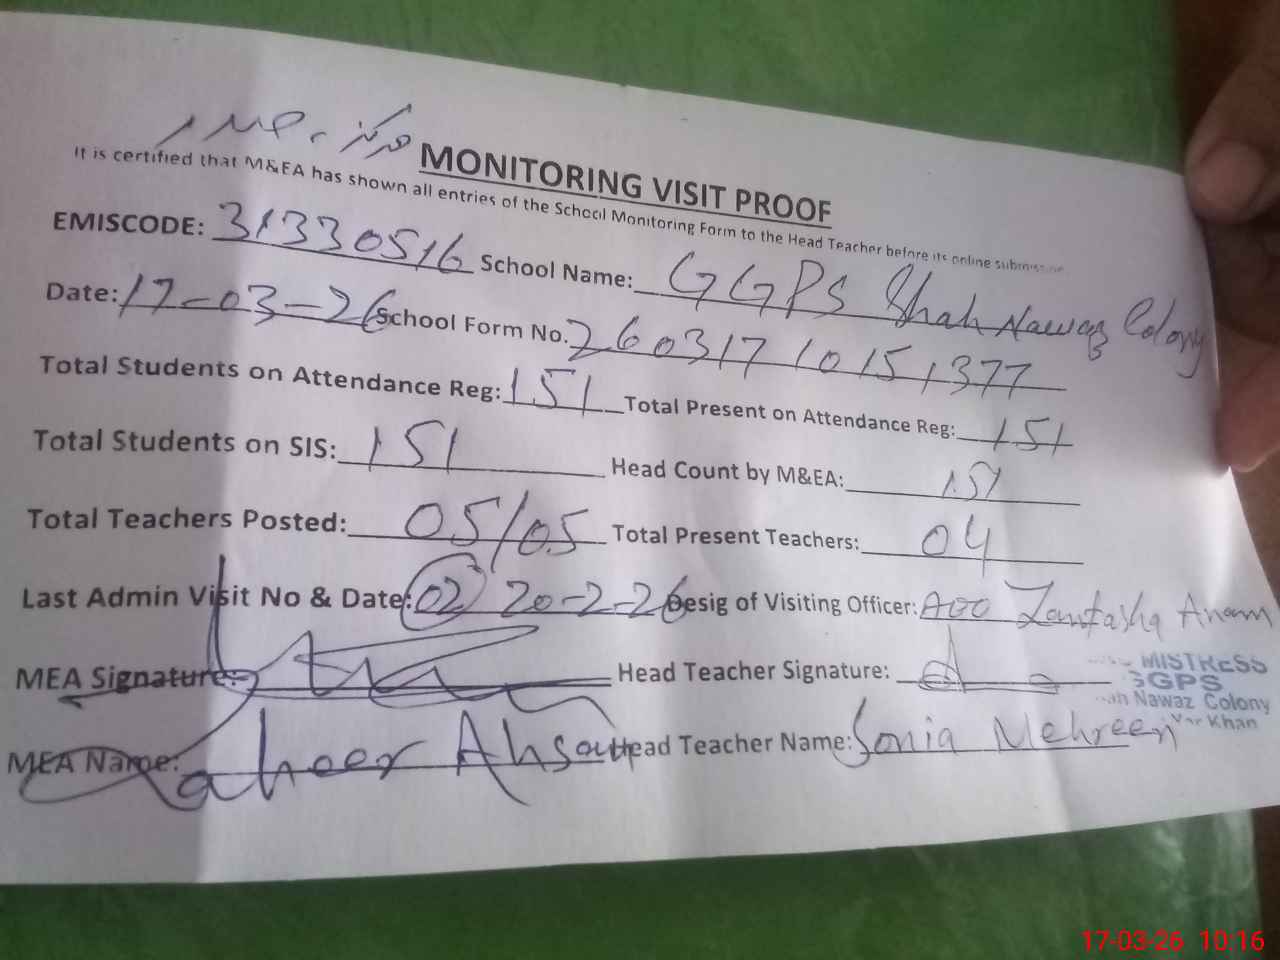 مرکز
MONITORING VISIT PROOF
It is certified that M&EA has shown all entries of the School Monitoring Form to the Head Teacher before its online submission
EMISCODE: 31330516 School Name: GGPS Shah Nawaz Colony
Date: 17-03-26 School Form No. 26031710151377
Total Students on Attendance Reg: 151 Total Present on Attendance Reg: 151
Total Students on SIS: 151 Head Count by M&EA: 151
Total Teachers Posted: 05/05 Total Present Teachers: 04
Last Admin Visit No & Date: 02 20-2-26 Desig of Visiting Officer: AEO Anam
MEA Signature: Head Teacher Signature:
MISTRESS
GGPS
Nawaz Colony
Yar Khan
MEA Name: Ahsan Head Teacher Name: Sonia Mehreen
17-03-26 10:16